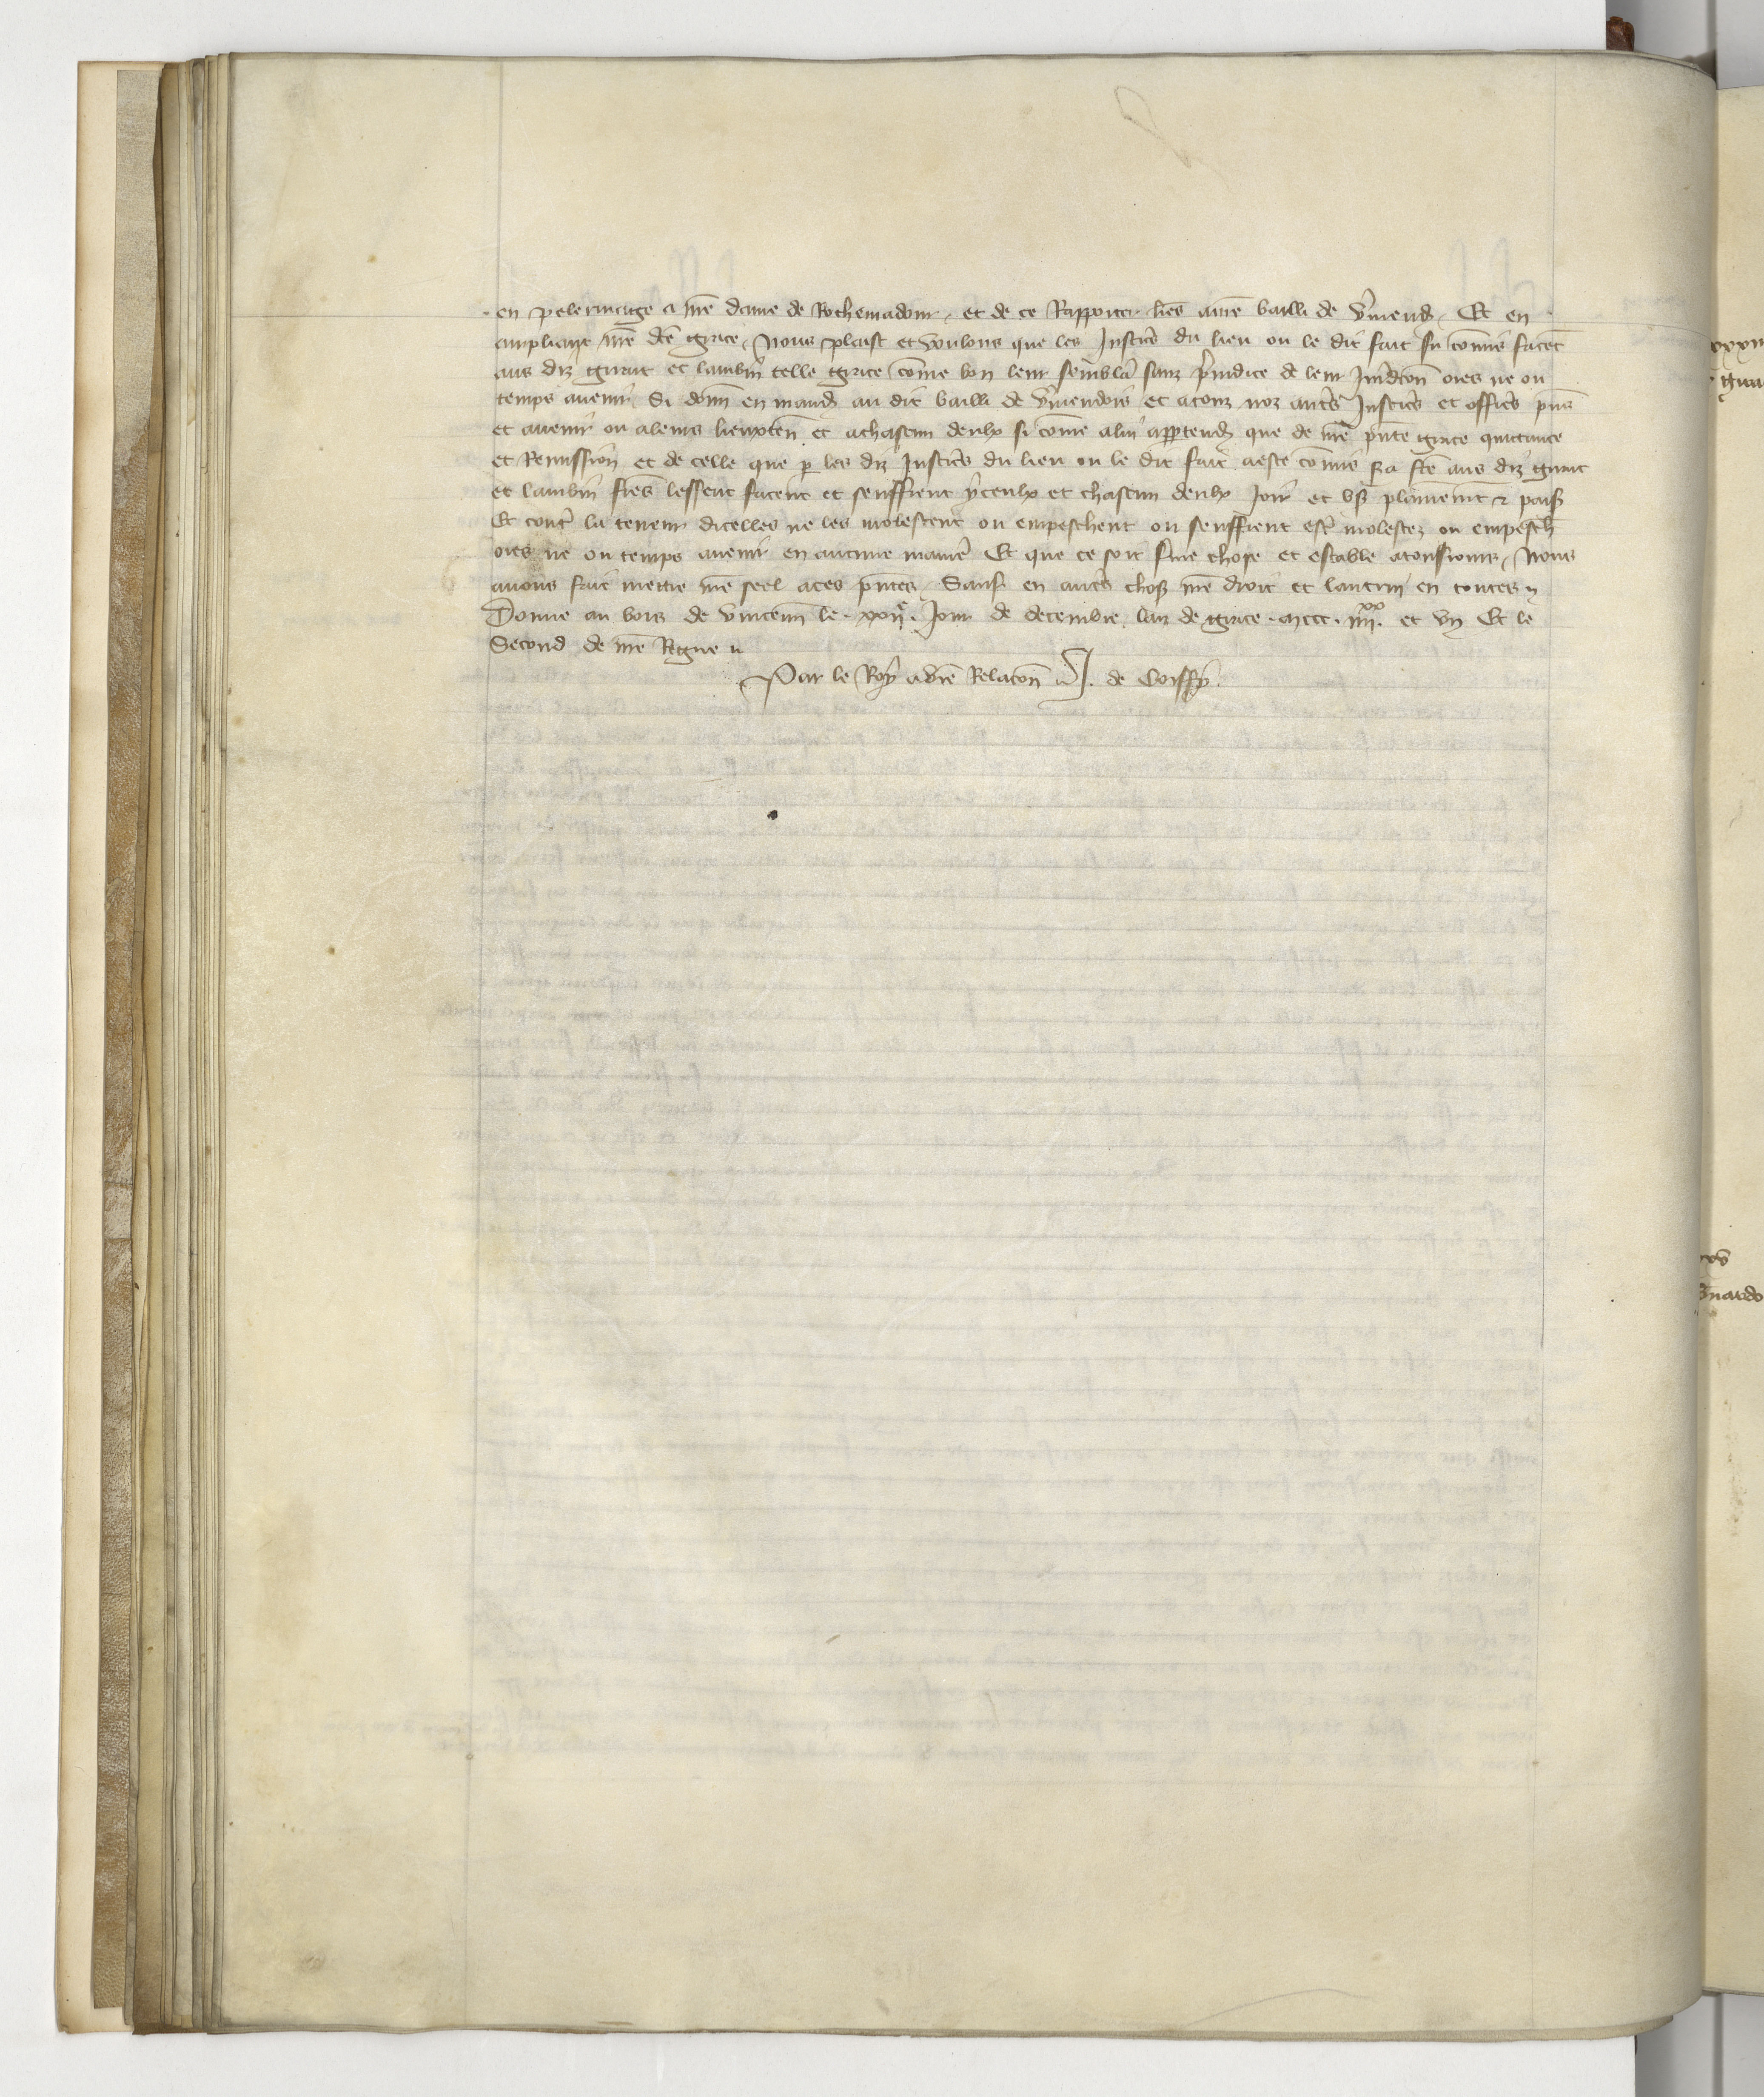 en pelerinage a nre dame de Rochemadour, et de ce Rapporter lres a nre bailli de Vmend. Et en
ampliant nre dce grace, Nous plaist et voulons que les Justices du lieu ou le dit fait fu comis facet
aus diz giraut et lambin telle grace come bon leur semblera sanz preiudice de leur Juridicon ores ne ou
temps auenir Si donn en mand au dit bailli de Vmendois et a touz noz autres Justices et offices pns
et auenir ou a leurs lieuxten et a chascun deulx si come a lui appartendra que de nre pnte grace quittance
et Remission et de celle que p les diz Justices du lieu ou le dit fait a este comis sera fte aus diz giraut
et lambin fres lessent facent et seuffrent yceulx et chascun deulx Joir et vs plainemt et pais
Et contre la teneur dicelles ne les molestent ou empeschent ou seuffrent estre molestez ou empesch
ores ne ou temps auenir en aucune maniere Et que ce soit ferme chose et estable a tousiours, Nous
auons fait mettre nre seel a ces pntes, Sauf en autres chos nre droit et lautrui en toutes
Donne au bois de Vincenn le xxiie Jour de decembre lan de grace mccc iiii xx et vn Et le
Second de nre Regne
Par le Roy a vre Relacon J. de Coiffy